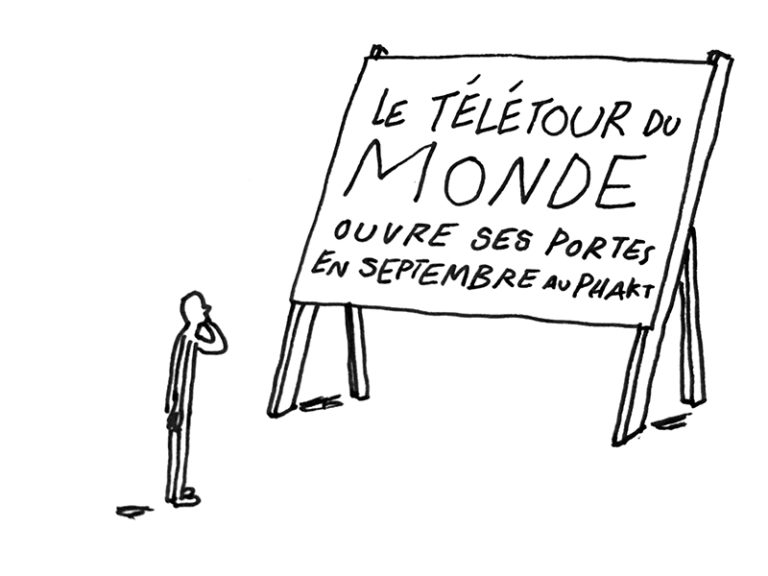 LE TÉLÉTOUR DU
MONDE
OUVRE SES PORTES
EN SEPTEMBRE AU PHAKT